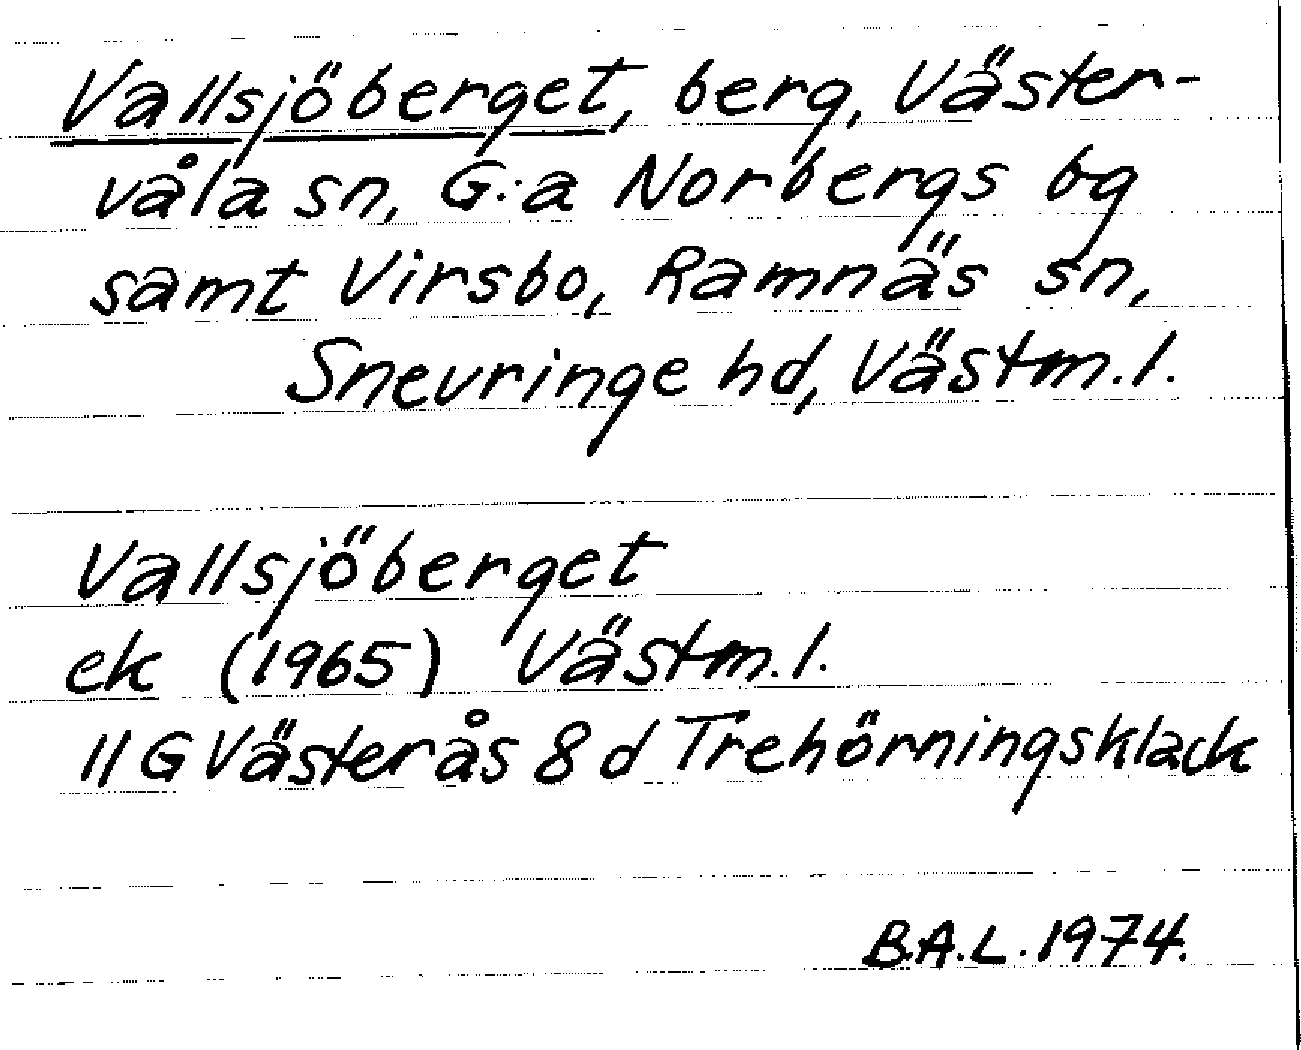 Vallsjöberget, berg, Väster-
våla sn, G:a Norbergs bg
samt Virsbo, Ramnäs sn,
Snevringe hd, Västm.l.
Vallsjöberget
ek (1965) Västm.l.
11 G Västerås 8 d Trehörningsklack
B.A.L. 1974.